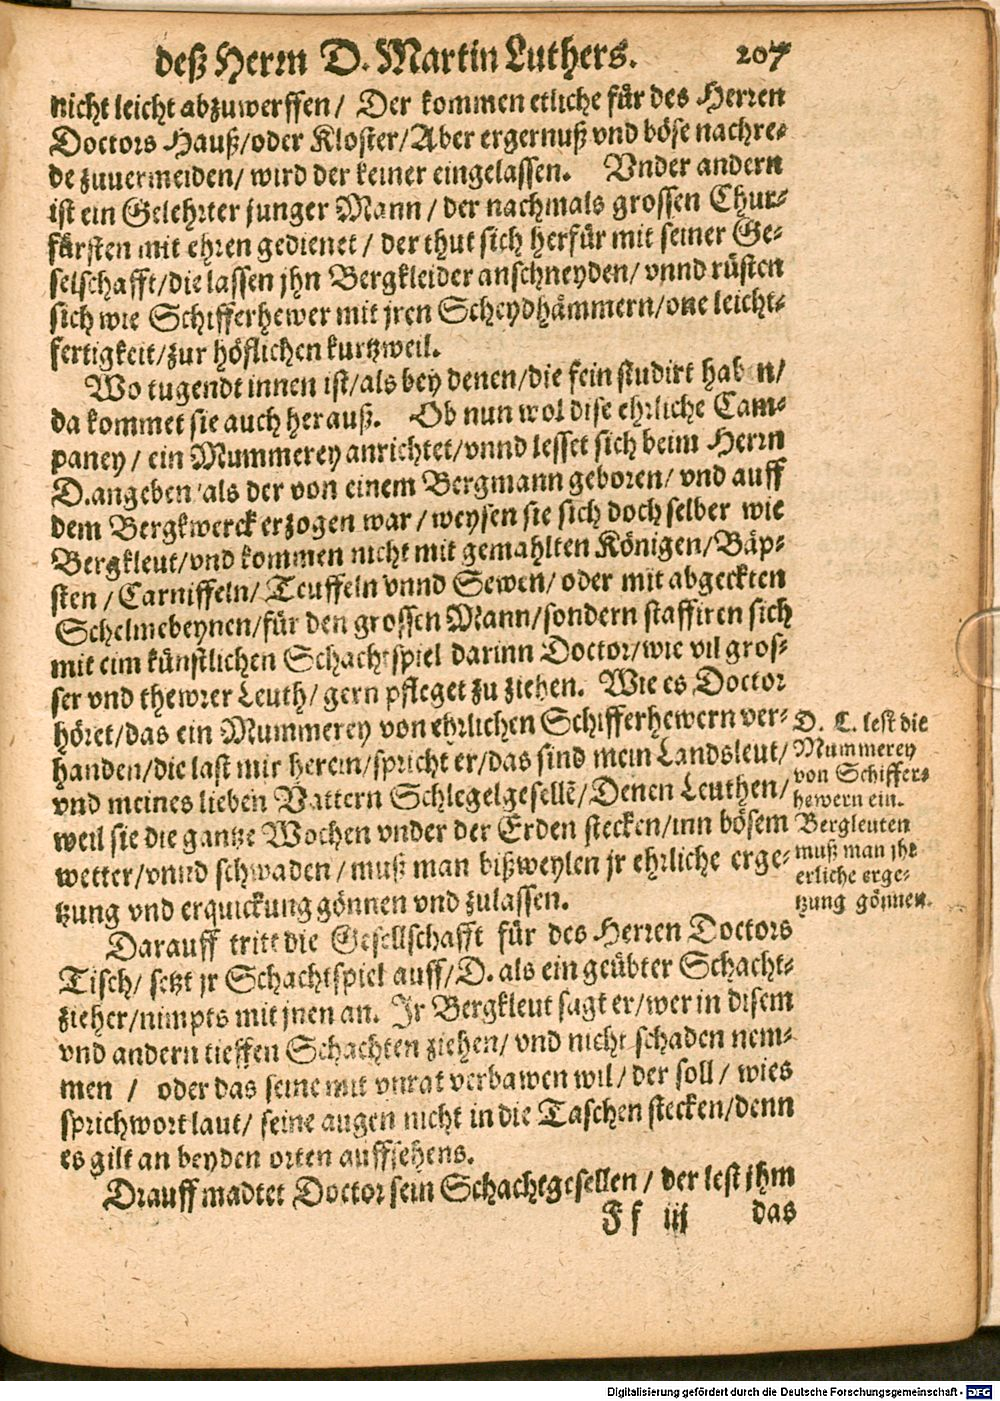 deß Herrn D. Martin Luthers. 207
nicht leicht abzuwerffen/ Der kommen etliche für des Herren
Doctors Hauß/oder Kloster/Aber ergernuß vnd böse nachre-
de zuuermeiden/ wird der keiner eingelassen. Vnder andern
ist ein Gelehrter junger Mann / der nachmals grossen Chur-
fürsten mit ehren gedienet / der thut sich herfür mit seiner Ge-
selschafft/die lassen jhn Bergkleider anschneyden/ vnnd rüsten
sich wie Schifferhewer mit jren Scheydhämmern/one leicht-
fertigkeit/zur höflichen kurtzweil.
Wo tugendt innen ist/als bey denen/die fein studirt haben/
da kommet sie auch herauß. Ob nun wol dise ehrliche Cam-
paney / ein Mummerey anrichtet/vnnd lesset sich beim Herrn
D.angeben/als der von einem Bergmann geboren/ vnd auff
dem Bergkwerck erzogen war / weysen sie sich doch selber wie
Bergkleut/vnd kommen nicht mit gemahlten Königen/Bäp-
sten / Carniffeln/ Teuffeln vnnd Sewen/ oder mit abgeckten
Schelmebeynen/für den grossen Mann/sondern staffiren sich
mit eim künstlichen Schachtspiel darinn Doctor/wie vil gros-
ser vnd thewrer Leuth/ gern pfleget zu ziehen. Wie es Doctor
höret/das ein Mummerey von ehrlichen Schifferhewern ver-
handen/die last mir herein/spricht er/das sind mein Landsleut/
vnd meines lieben Vattern Schlegelgesellē/Denen Leuthen/
weil sie die gantze Wochen vnder der Erden stecken/inn bösem
wetter/vnnd schwaden / muß man bißweylen jr ehrliche erge-
tzung vnd erquickung gönnen vnd zulassen.
D. L. lest die
Mummerey
von Schiffer-
hewern ein.
Bergleuten
muß man jhr
erliche erge-
tzung gönnen.
Darauff tritt die Gesellschafft für des Herren Doctors
Tisch/ setzt jr Schachtspiel auff/D. als ein geübter Schacht-
zieher/nimpts mit jnen an. Jr Bergkleut sagt er/wer in disem
vnd andern tieffen Schachten ziehen/ vnd nicht schaden nem-
men / oder das seine mit vnrat verbawen wil/ der soll / wies
sprichwort laut/ seine augen nicht in die Taschen stecken/denn
es gilt an beyden orten auffsehens.
Drauff madtet Doctor sein Schachtgesellen / der lest jhm
F f iij das
Digitalisierung gefördert durch die Deutsche Forschungsgemeinschaft - DFG